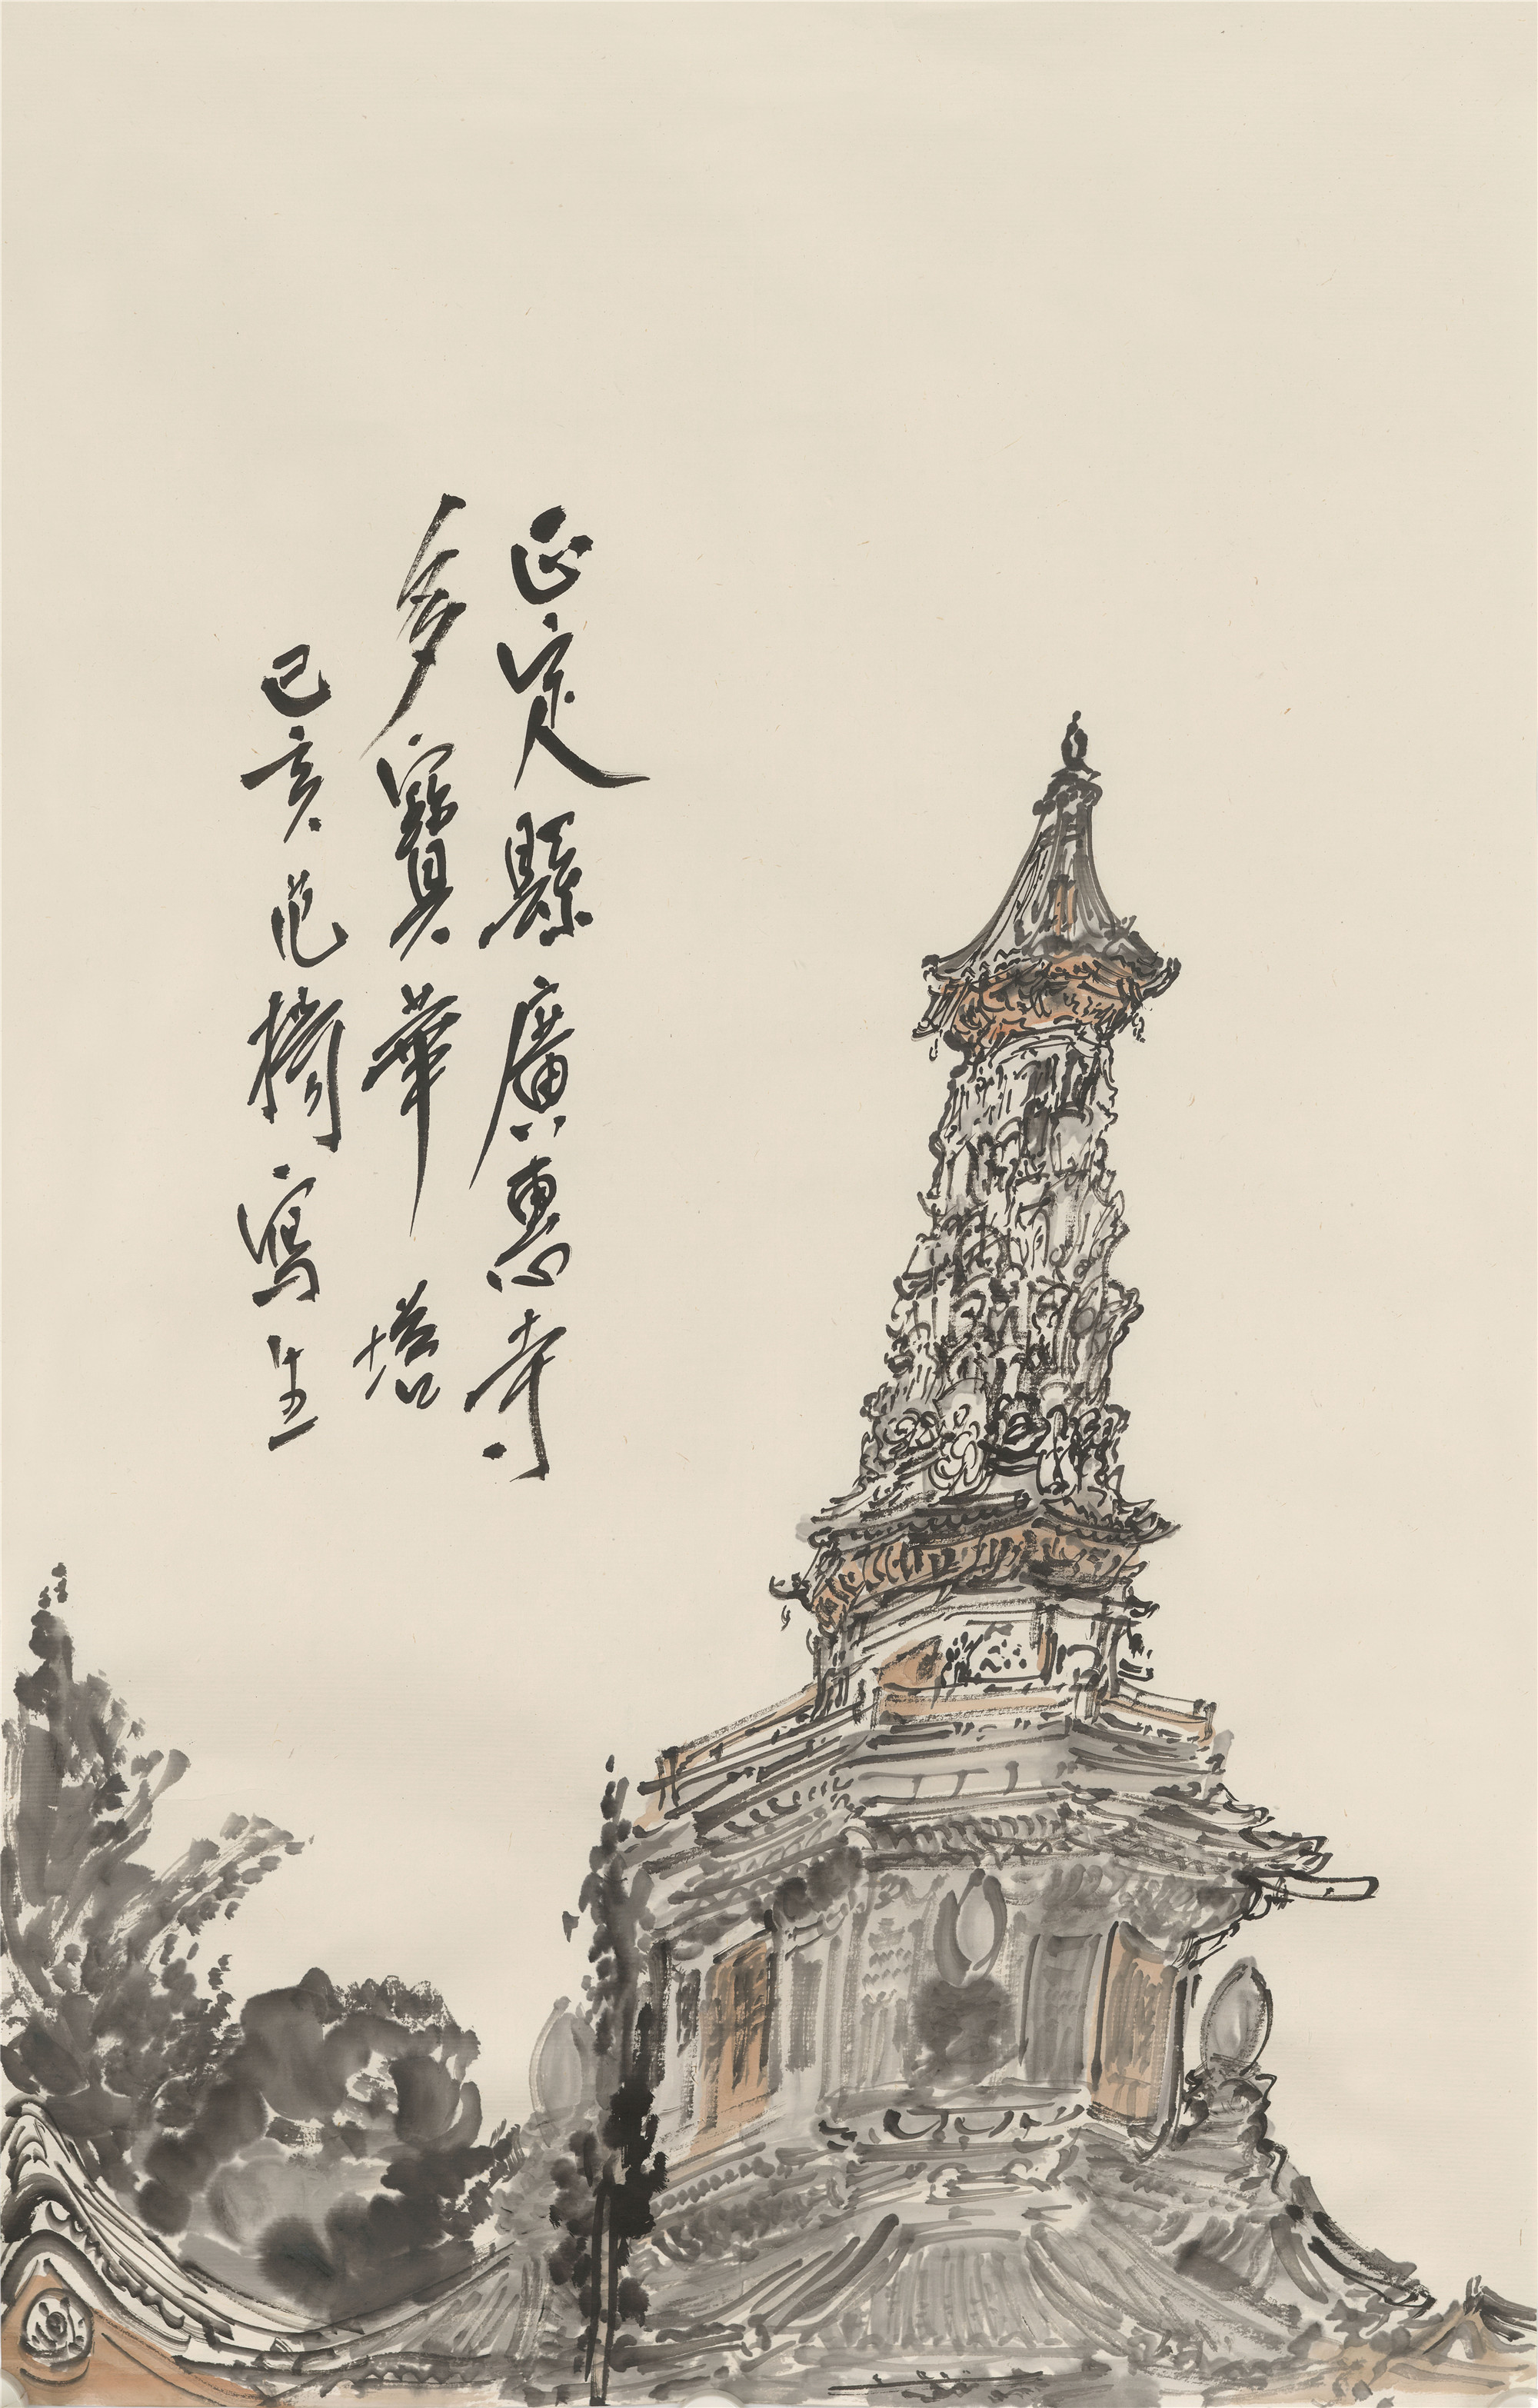 正定縣廣惠寺
多寶華塔
己亥范攡寫生